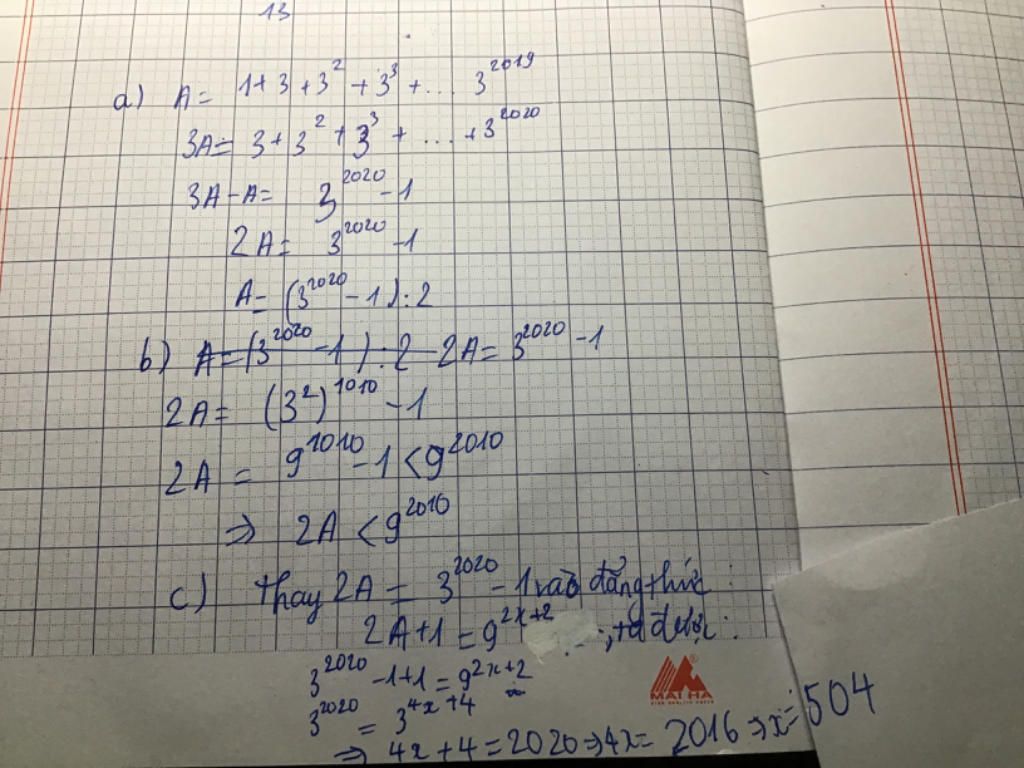 13
a) A = 1+3+3²+3³+... 3²⁰¹⁹
3A = 3+3²+3³+...+3²⁰²⁰
3A-A = 3²⁰²⁰-1
2A = 3²⁰²⁰-1
A = (3²⁰²⁰-1):2
b) A=(3²⁰²⁰-1):2 2A = 3²⁰²⁰-1
2A = (3²)¹⁰¹⁰-1
2A = 9¹⁰¹⁰-1 < 9²⁰¹⁰
⇒ 2A < 9²⁰¹⁰
c) Thay 2A = 3²⁰²⁰-1 vào đẳng thức :
2A+1 = 9²ˣ⁺² , ta được :
3²⁰²⁰-1+1 = 9²ˣ⁺²
3²⁰²⁰ = 3⁴ˣ⁺⁴
⇒ 4x+4 = 2020 ⇒ 4x = 2016 ⇒ x = 504
MAI HA